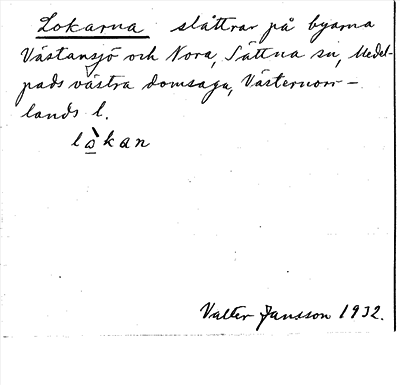 Lokarna slåttrar på byarna
Västansjö och Nora, Sättna sn, Medel-
pads västra domsaga, Västernorr-
lands l.
lò̲kan
Valter Jansson 1932.